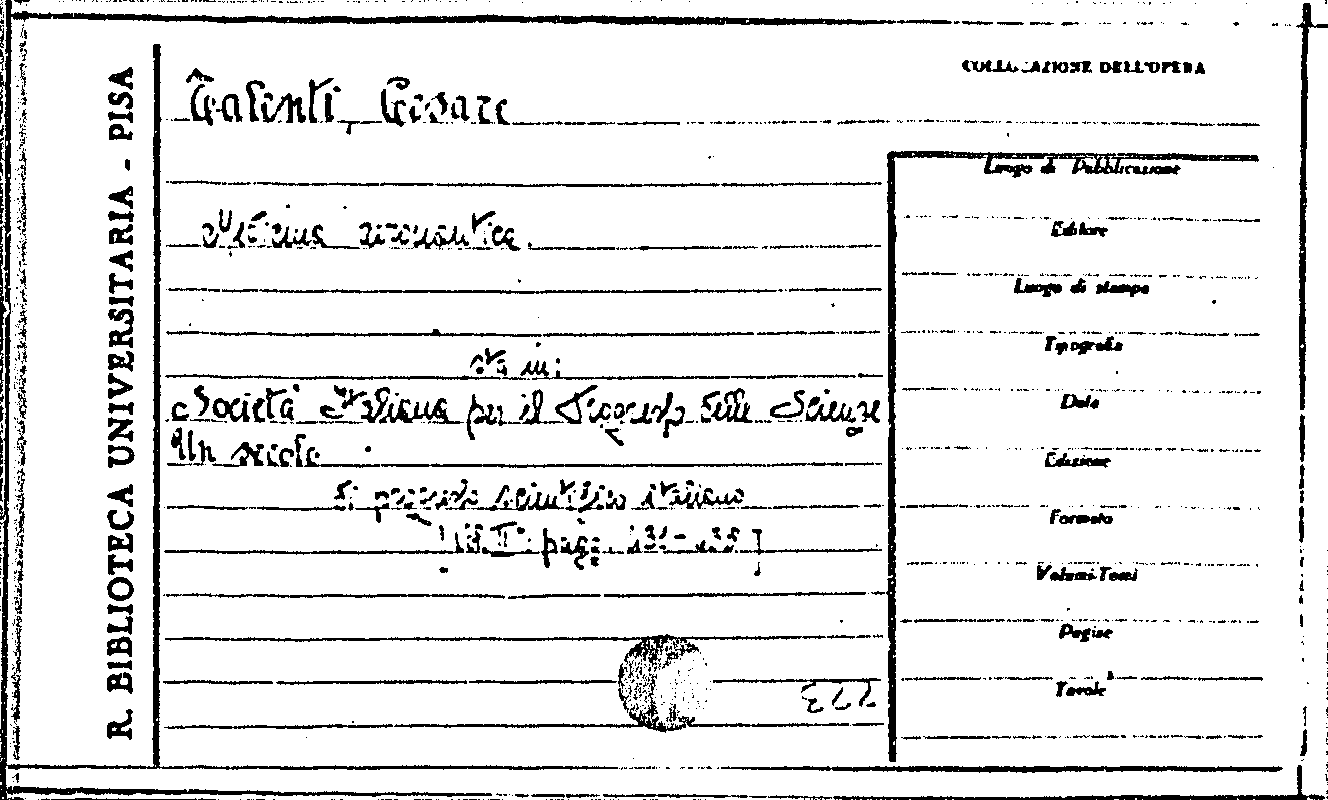 R. BIBLIOTECA UNIVERSITARIA - PISA
COLLOCAZIONE DELL'OPERA
Talenti, Cesare
Medicina aeronautica.
sta in:
Società Italiana per il Progresso delle Scienze
Un secolo
di progresso scientifico italiano
pagg.
Luogo di Pubblicazione
Editore
Luogo di stampa
Tipografia
Data
Edizione
Formato
Volumi-Tomi
Pagine
Tavole